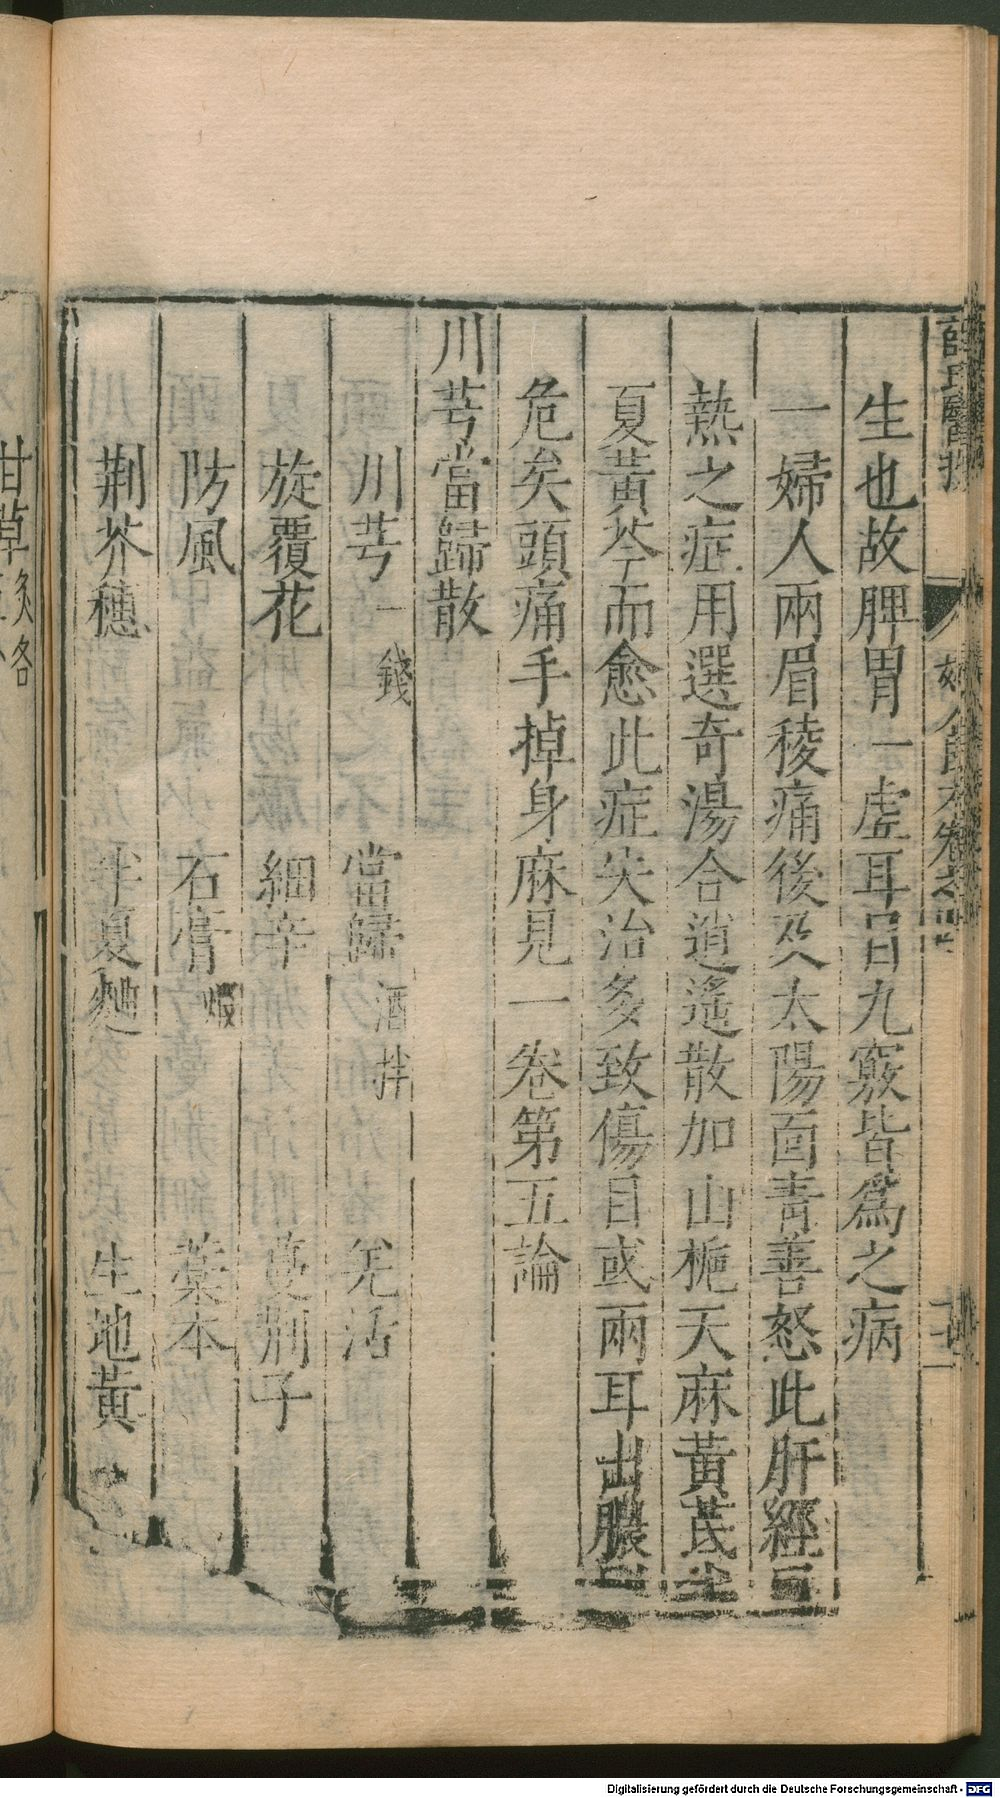 生也故脾胃一虛耳目九竅皆爲之病
一婦人兩眉稜痛後及太陽面青善怒此肝經
熱之症用選奇湯合逍遙散加山梔天麻黃芪半
夏黃芩而愈此症失治多致傷目或兩耳出膿
危矣頭痛手掉身麻見一卷第五論
川芎當歸散
川芎一錢 當歸酒拌 羌活
旋覆花 細辛 蔓荆子
防風 石膏煅 藁本
荆芥穗 半夏麯 生地黃
甘草炙各
Digitalisierung gefördert durch die Deutsche Forschungsgemeinschaft - DFG